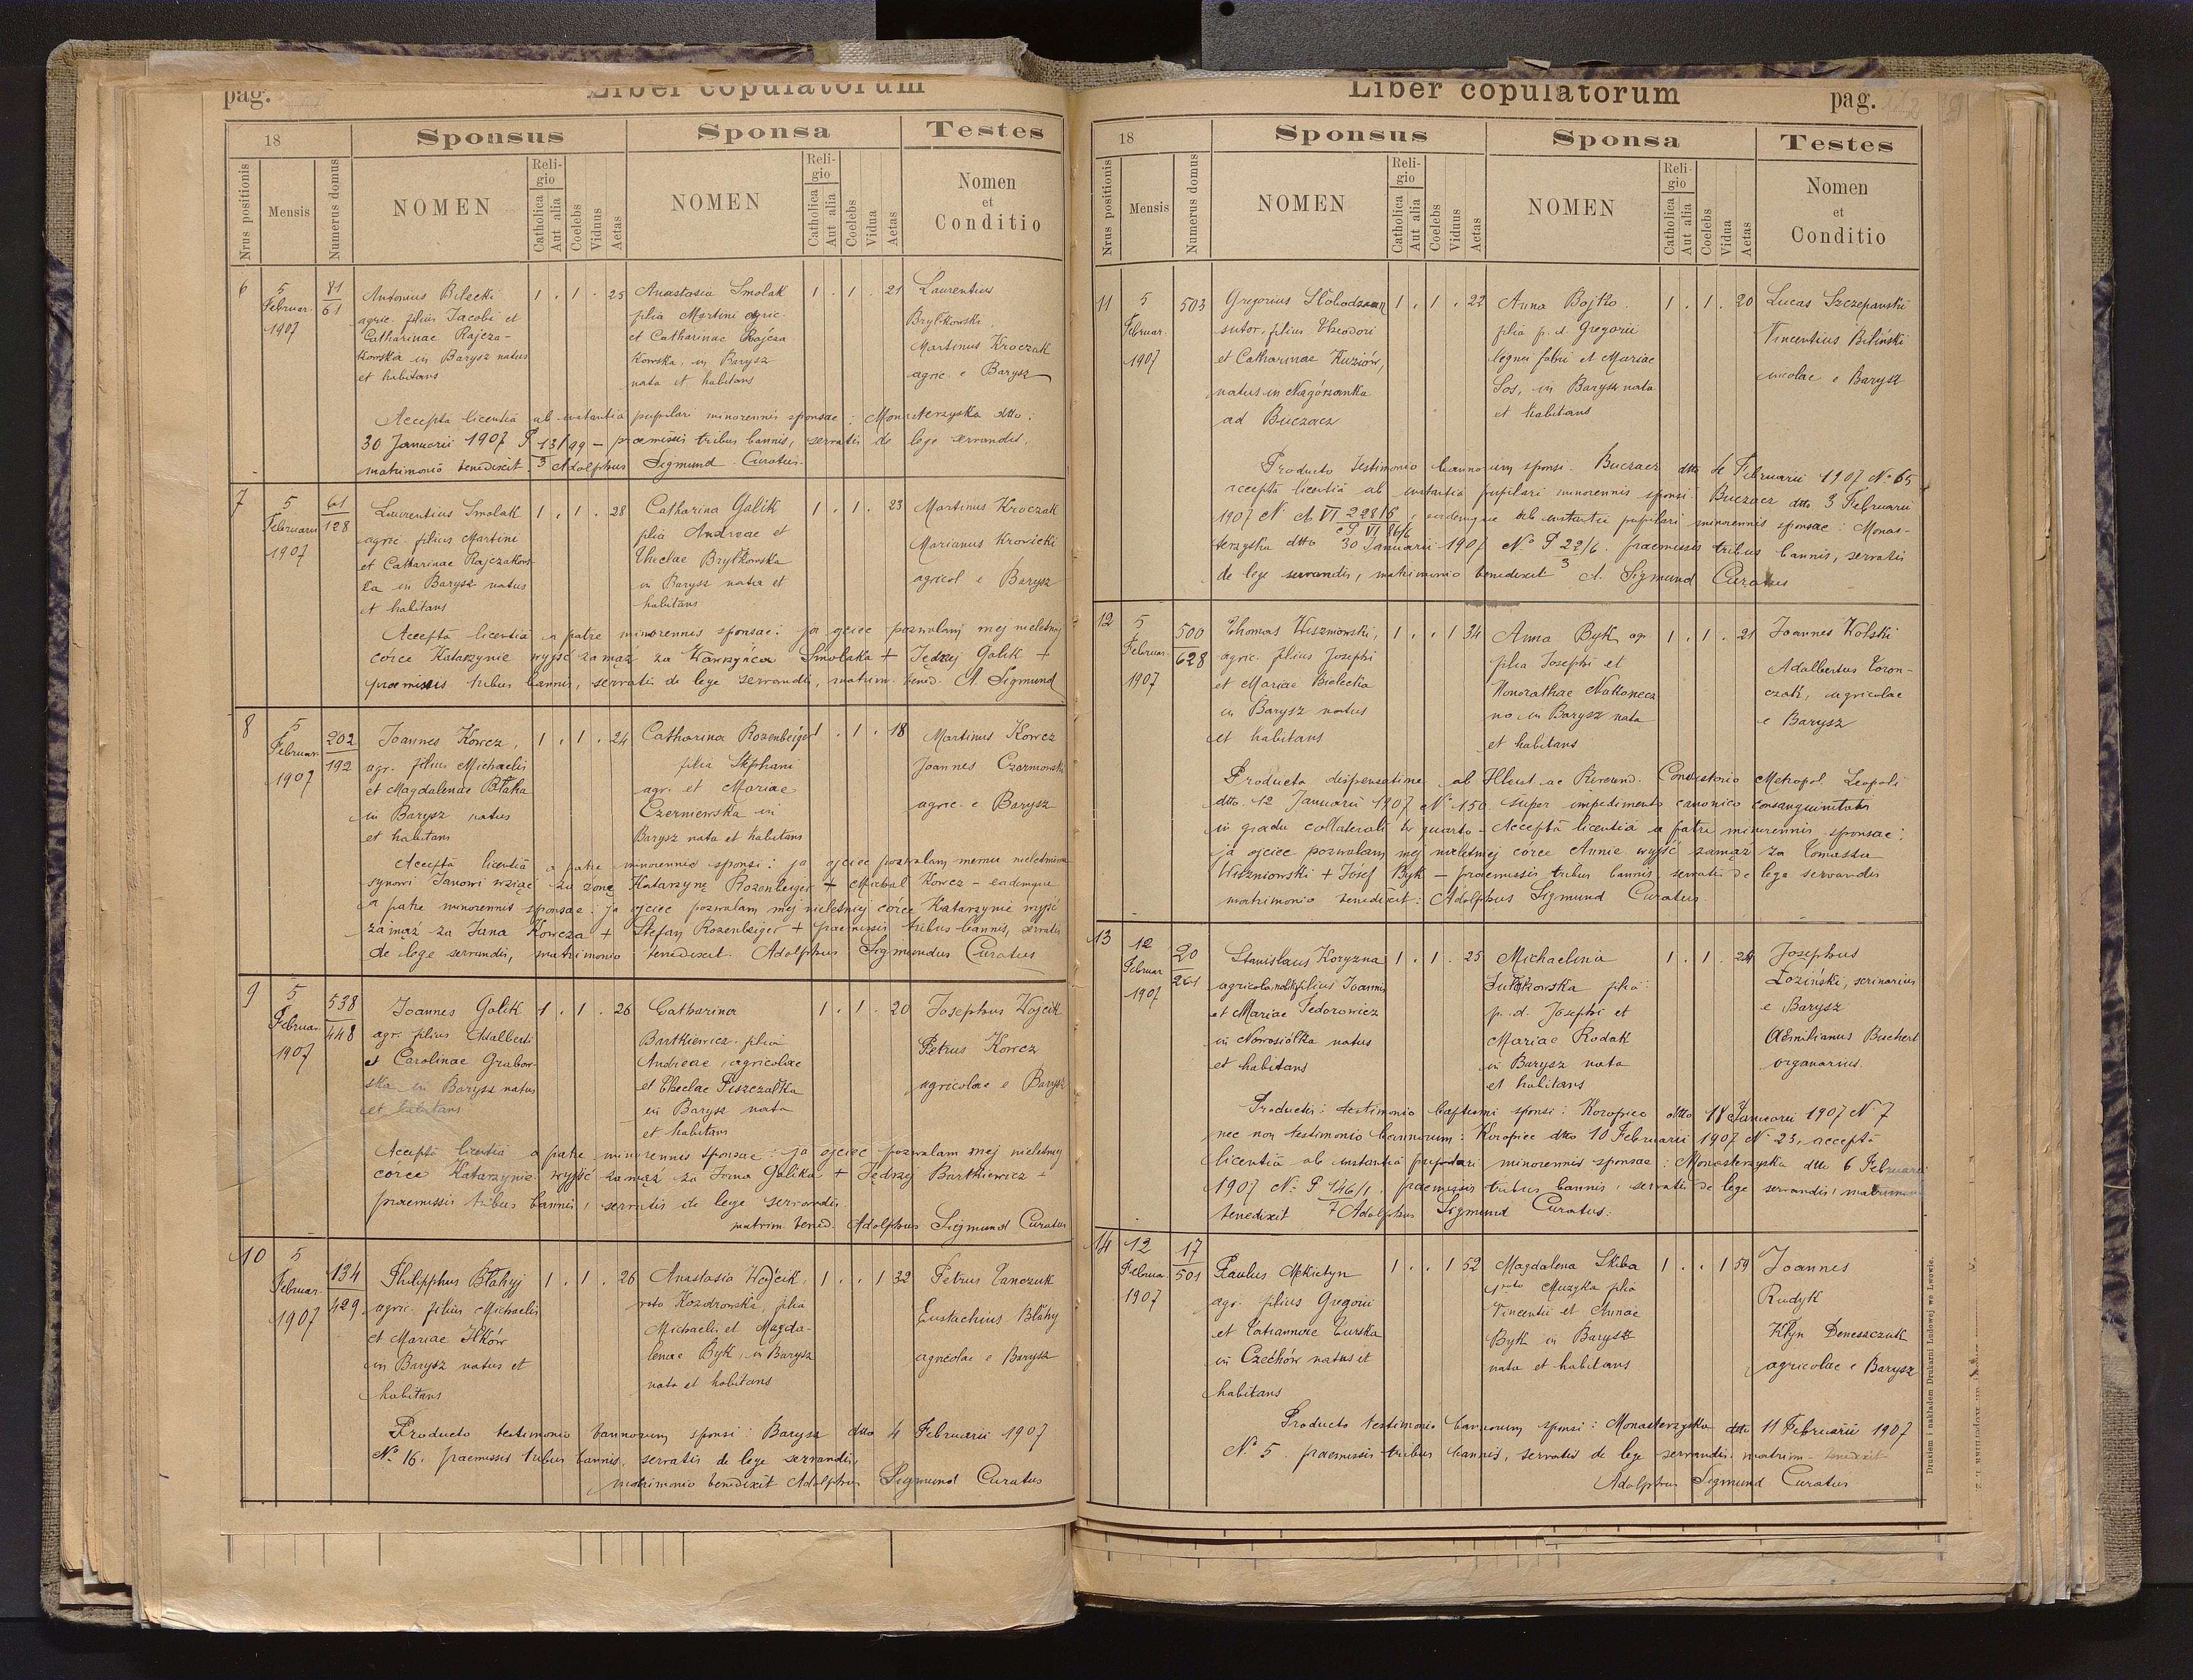 pag.
Liber copulatorum
18
Sponsus
Sponsa
Testes
Nrus positionis
Mensis
Numerus domus
NOMEN
Religio
Catholica
Aut alia
Coelebs
Viduus
Aetas
NOMEN
Religio
Catholica
Aut alia
Coelebs
Vidua
Aetas
Nomen
et
Conditio
6
5
Februar.
1907
81
61
Antonius Bilecki
agric. filius Jacobi et
Catharinae Rajcza-
kowska in Barysz natus
et habitans
1 . 1 . 25
Anastasia Smolak
filia Martini agric.
et Catharinae Rajcza
kowska, in Barysz
nata et habitans
1 . 1 . 21
Laurentius
Brylkowski,
Martinus Kroczak
agric. e Barysz
Acceptâ licentiâ ab instantia pupilari minorennis sponsae: Monasterzyska dtto:
30 Januarii 1907 P 13/99 – praemissis tribus bannis, servatis de lege servandis,
3
matrimonio benedixit Adolphus Sigmund Curatus.
7
5
Februarii
1907
61
128
Laurentius Smolak
agric. filius Martini
et Catharinae Rajczakows-
ka in Barysz natus
et habitans
1 . 1 . 28
Catharina Galik
filia Andreae et
Theclae Brylkowska
in Barysz nata et
habitans
1 . 1 . 23
Martinus Kroczak
Marianus Krowicki
agricol e Barysz
Acceptâ licentiâ a patre minorennis sponsae: ja ojciec pozwalam mej nieletniej
córce Katarzynie wyjść zamąż za Wawrzyńca Smolaka + Jędrzej Galik +
praemissis tribus bannis, servatis de lege servandis, matrim. bened. A. Sigmund
8
5
Februar.
1907
202
192
Joannes Kowcz,
agr. filius Michaelis
et Magdalenae Błaha
in Barysz natus
et habitans
1 . 1 . 24
Catharina Rozenbeiger
filia Stephani
agr. et Mariae
Czerniewska in
Barysz nata et habitans
1 . 1 . 18
Martinus Kowcz
Joannes Czerniowski
agric. e Barysz
Acceptâ licentiâ a patre minorennis sponsi: ja ojciec pozwalam memu nieletniemu
synowi Janowi wziąć za żonę Katarzynę Rozenbeiger + Michał Kowcz – eademque
a patre minorennis sponsae: ja ojciec pozwalam mej nieletniej córce Katarzynie wyjść
zamąż za Jana Kowcza + Stefan Rozenbeiger + praemissis tribus bannis, servatis
de lege servandis, matrimonio benedixit. Adolphus Sigmundus Curatus
9
5
Februar.
1907
538
448
Joannes Galik
agr. filius Adalberti
et Carolinae Grabow-
ska in Barysz natus
et habitans
1 . 1 . 26
Catharina
Bartkiewicz filia
Andreae, agricolae
et Theclae Piszczałka
in Barysz nata
et habitans
1 . 1 . 20
Josephus Wojcik
Petrus Kowcz
agricolae e Barysz
Acceptâ licentiâ a patre minorennis sponsae: ja ojciec pozwalam mej nieletniej
córce Katarzynie wyjść zamąż za Jana Galika + Jędrzej Bartkiewicz +
praemissis tribus bannis, servatis de lege servandis
matrim. bened. Adolphus Sigmund Curatus
10
5
Februar.
1907
134
429
Philipphus Błahyj
agric. filius Michaelis
et Mariae Ilków
in Barysz natus et
habitans
1 . 1 . 26
Anastasia Wojcik,
nata Kozdrowska, filia
Michaelis et Magda-
lenae Byk, in Barysz
nata et habitans
1 . . 1 32
Petrus Tanczuk
Eustachius Błahy
agricolae e Barysz
Producto testimonio bannorum sponsi: Barysz dtto 4 Februarii 1907
No 16. praemissis tribus bannis, servatis de lege servandis,
matrimonio benedixit Adolphus Sigmund Curatus
Liber copulatorum
pag.
18
Sponsus
Sponsa
Testes
Nrus positionis
Mensis
Numerus domus
NOMEN
Religio
Catholica
Aut alia
Coelebs
Viduus
Aetas
NOMEN
Religio
Catholica
Aut alia
Coelebs
Vidua
Aetas
Nomen
et
Conditio
11
5
Februar.
1907
503
Gregorius Słobodzian
sutor, filius Theodori
et Catharinae Kuziów,
natus in Nagórzanka
ad Buczacz
1 . 1 . 22
Anna Bojko
filia p. d. Gregorii
legnei fabri et Mariae
Sos, in Barysz nata
et habitans
1 . 1 . 20
Lucas Szczepanski
Vincentius Bilinski
incolae e Barysz
Producto testimonio bannorum sponsi. Buczacz dtto 4 Februarii 1907 No 65
acceptâ licentiâ ab instantia pupilari minorennis sponsi. Buczacz dtto 3 Februarii
1907 N A VI 228/6, eademque ab instantia pupilari minorennis sponsae: Monas-
P VI 86/6
terzyska dtto 30 Januarii 1907 No P 22/6. praemissis tribus bannis, servatis
3
de lege servandis, matrimonio benedixit A. Sigmund Curatus
12
5
Februar.
1907
500
628
Thomas Wiszniowski,
agric. filius Josephi
et Mariae Bielecka
in Barysz natus
et habitans
1 . . 1 34
Anna Byk agr.
filia Josephi et
Honorathae Nakonecz
na in Barysz nata
et habitans
1 . 1 . 21
Joannes Wolski
Adalbertus Woron-
czak, agricolae
e Barysz
Producta dispensatione ab Illust. ac Reverend. Consistorio Metropol. Leopoli
dtto. 12 Januarii 1907 No 150. super impedimento canonico consanguinitatis
in gradu collaterali quarto – Acceptâ licentiâ a patre minorennis sponsae:
ja ojciec pozwalam mej nieletniej córce Annie wyjść zamąż za Tomasza
Wiszniowski + Josef Byk – praemissis tribus bannis, servatis de lege servandis
matrimonio benedixit: Adolphus Sigmund Curatus.
13
12
Februar
1907
20
261
Stanislaus Koryzna
agricola, filius Joannis
et Mariae Fedorowicz
in Nowosiółka natus
et habitans
1 . 1 . 25
Michaelina
Sułkowska filia
p. d. Josephi et
Mariae Rodak
in Barysz nata
et habitans
1 . 1 . 24
Josephus
Łoziński, scriniarius
e Barysz
Aemilianus Buchert
organarius.
Productis: testimonio baptismi sponsi: Koropiec dtto 18 Januarii 1907 N 7
nec non testimonio bannorum: Koropiec dtto 10 Februarii 1907 No 23. acceptâ
licentiâ ab instantia pupilari minorennis sponsae: Monasterzyska dtto 6 Februarii
1907 No P 146/1. praemissis tribus bannis, servatis de lege servandis, matrimonio
7
benedixit Adolphus Sigmund Curatus.
14
12
Februa.
1907
17
501
Paulus Mekietyn
agr. filius Gregorii
et Tatiannae Turska
in Czechów natus et
habitans
1 . . 1 52
Magdalena Skiba
Muzyka filia
Vincentii et Annae
Byk in Barysz
nata et habitans
1 . . 1 59
Joannes
Rudyk
Kłyn Deneszczuk
agricolae e Barysz
Producto testimonio bannorum sponsi: Monasterzyska dtto 11 Februarii 1907
No 5. praemissis tribus bannis, servatis de lege servandis, matrim. benedixit
Adolphus Sigmund Curatus
Drukiem i nakładem Drukarni Ludowej we Lwowie.